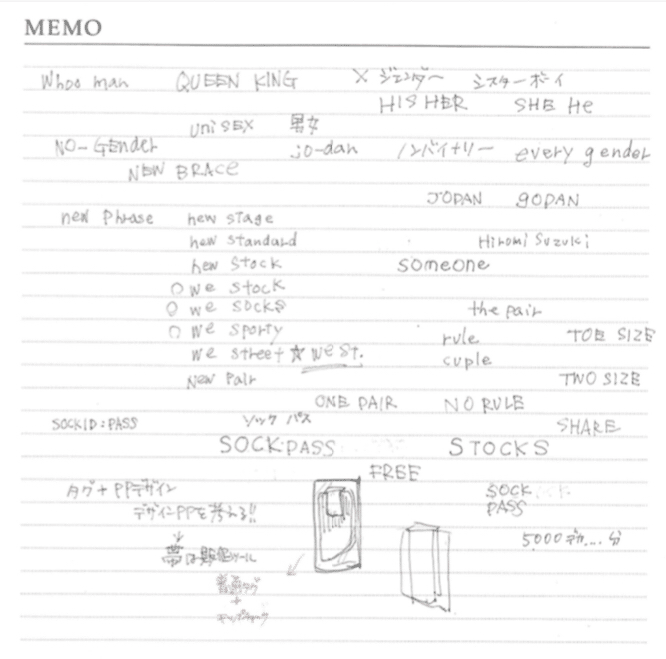 MEMO
Whoo man QUEEN KING × ジェンダー ミスターボーイ
HIS HER SHE He
uniSEX 男女
NO-GEnder jo-dan ノンバイナリー every gender
NEW BRACE
JODAN gODAN
new Phrase new stage
new standard Hiromi Suzuki
new Stock someone
○ we stock
○ we socks the pair
○ we sporty rule TOE SIZE
we street ☆ we st. cuple
New Pair TWO SIZE
ONE PAIR NO RULE
SOCKID:PASS ソック パス SHARE
SOCK:PASS STOCKS
FREE
タグ+PPデザイン SOCK
デザインPPを考える!! PASS
帯は シール 5000デカ...分
普通タグ
+